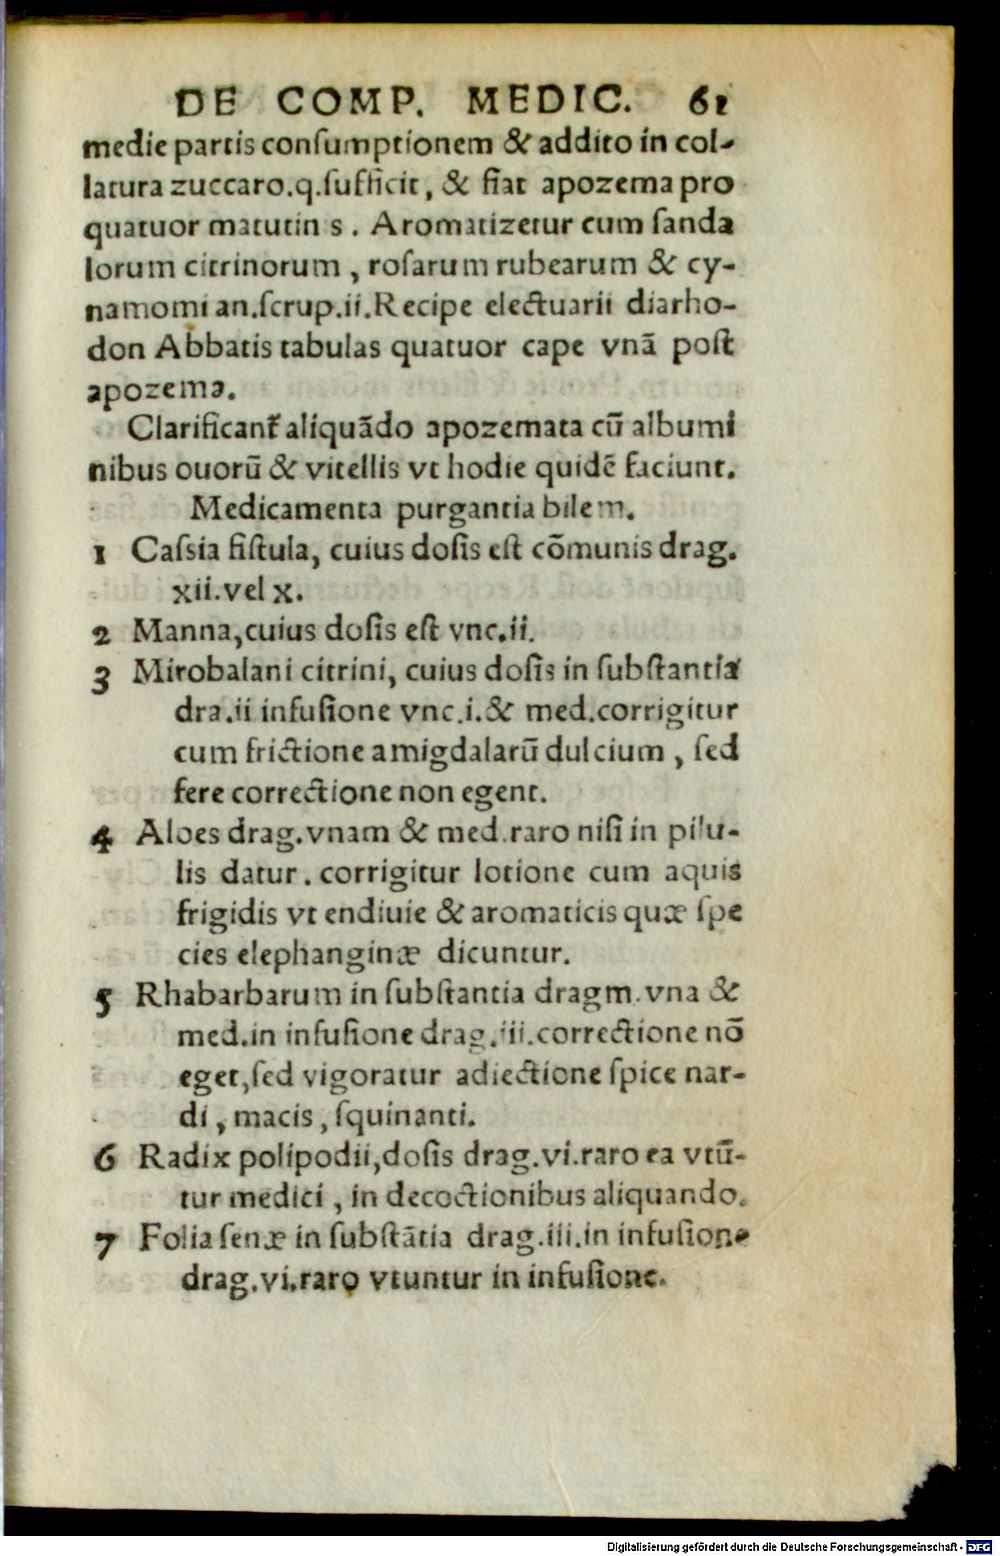 DE COMP. MEDIC. 61
medie partis conſumptionem & addito in col-
latura zuccaro.q.ſufficit, & fiat apozema pro
quatuor matutin s. Aromatizetur cum ſanda
lorum citrinorum, roſarum rubearum & cy-
namomi an.ſcrup.ii.Recipe electuarii diarho-
don Abbatis tabulas quatuor cape vnā poſt
apozema.
Clarificant᷑ aliquādo apozemata cū albumi
nibus ouorū & vitellis vt hodie quidē faciunt.
Medicamenta purgantia bilem.
1 Caſsia fiſtula, cuius doſis eſt cōmunis drag.
xii.vel x.
2 Manna,cuius doſis eſt vnc.ii.
3 Mirobalani citrini, cuius doſis in ſubſtantia
dra.ii infuſione vnc.i.& med.corrigitur
cum frictione amigdalarū dulcium, ſed
fere correctione non egent.
4 Aloes drag.vnam & med.raro niſi in pilu-
lis datur. corrigitur lotione cum aquis
frigidis vt endiuie & aromaticis quæ ſpe
cies elephanginæ dicuntur.
5 Rhabarbarum in ſubſtantia dragm.vna &
med.in infuſione drag.iii.correctione nō
eget,ſed vigoratur adiectione ſpice nar-
di, macis, ſquinanti.
6 Radix polipodii,doſis drag.vi.raro ea vtū-
tur medici, in decoctionibus aliquando.
7 Folia ſenæ in ſubſtātia drag.iii.in infuſione
drag.vi.raro vtuntur in infuſione.
Digitalisierung gefördert durch die Deutsche Forschungsgemeinschaft - DFG